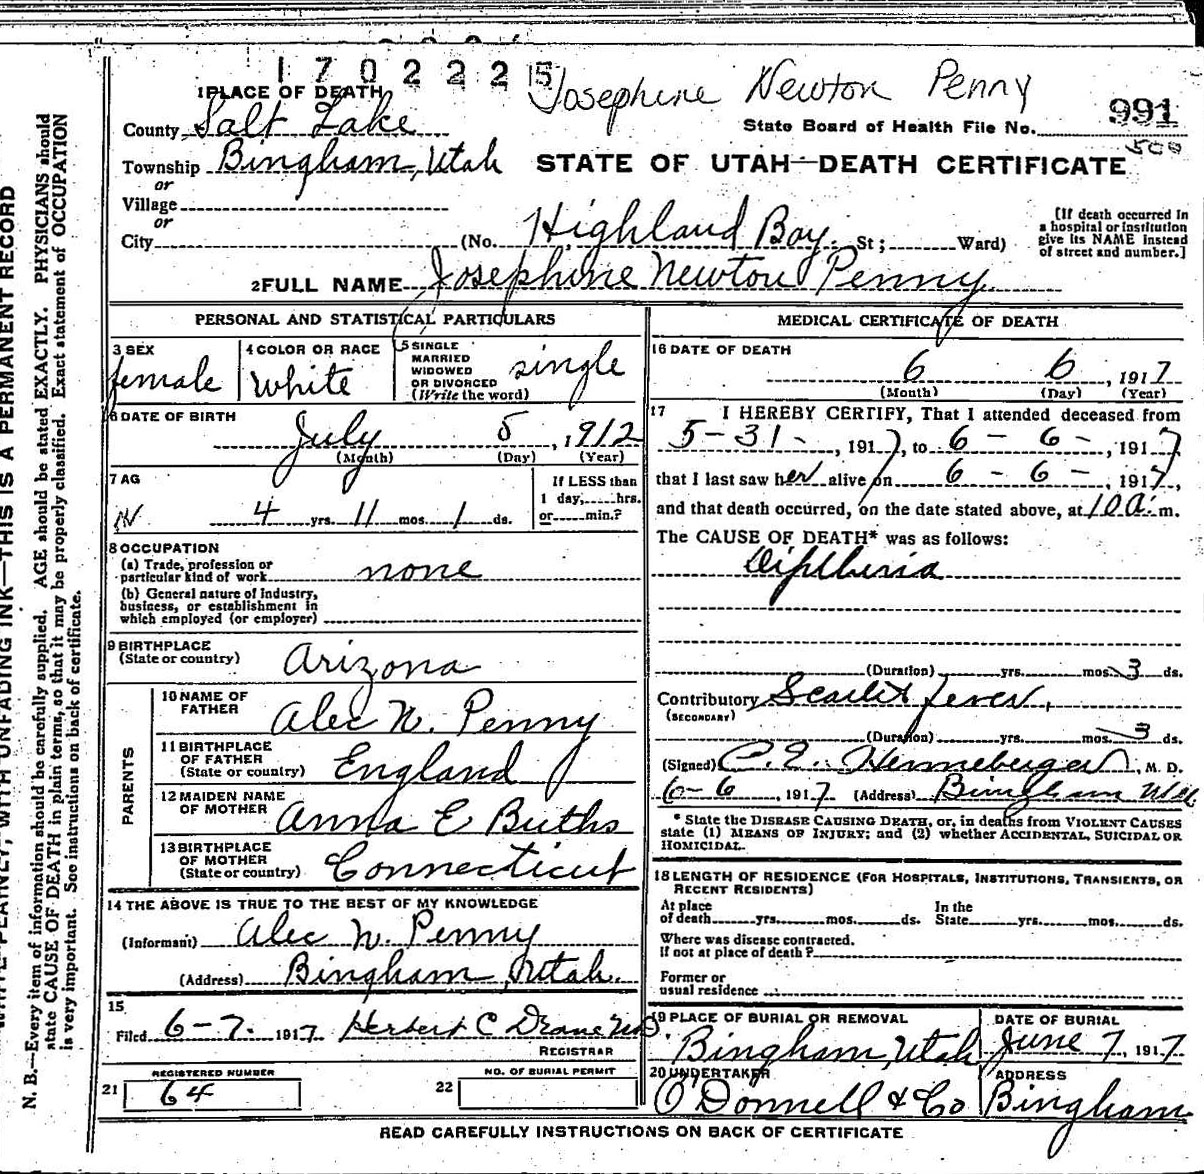 1702225
Josephine Newton Penny
1 PLACE OF DEATH
991
State Board of Health File No.
500
County Salt Lake
Township Bingham, Utah
STATE OF UTAH—DEATH CERTIFICATE
or
Village
or
City (No. Highland Boy St; Ward)
[If death occurred in
a hospital or institution
give its NAME instead
of street and number.]
2 FULL NAME Josephine Newton Penny
PERSONAL AND STATISTICAL PARTICULARS
3 SEX
female
4 COLOR OR RACE
White
5 SINGLE
MARRIED
WIDOWED
OR DIVORCED
(Write the word)
single
6 DATE OF BIRTH
July 5, 1912
(Month) (Day) (Year)
7 AG
4 yrs. 11 mos. 1 ds.
If LESS than
1 day, hrs.
or min.?
8 OCCUPATION
(a) Trade, profession or
particular kind of work none
(b) General nature of industry,
business, or establishment in
which employed (or employer)
9 BIRTHPLACE
(State or country) Arizona
PARENTS
10 NAME OF
FATHER Alec N. Penny
11 BIRTHPLACE
OF FATHER
(State or country) England
12 MAIDEN NAME
OF MOTHER Anna E Buths
13 BIRTHPLACE
OF MOTHER
(State or country) Connecticut
14 THE ABOVE IS TRUE TO THE BEST OF MY KNOWLEDGE
(Informant) Alec N. Penny
(Address) Bingham, Utah.
15
Filed 6-7. 1917 Herbert C
REGISTRAR
REGISTERED NUMBER
21 64
NO. OF BURIAL PERMIT
22
MEDICAL CERTIFICATE OF DEATH
16 DATE OF DEATH
6 6, 1917
(Month) (Day) (Year)
17 I HEREBY CERTIFY, That I attended deceased from
5-31-, 1917, to 6-6-, 1917,
that I last saw her alive on 6-6-, 1917,
and that death occurred, on the date stated above, at 10 a. m.
The CAUSE OF DEATH* was as follows:
Diptheria
(Duration) yrs. mos. 3 ds.
Contributory Scarlet fever,
(SECONDARY)
(Duration) yrs. mos. 3 ds.
(Signed) Henneberger, M. D.
6-6, 1917 (Address) Bingham Utah
* State the DISEASE CAUSING DEATH, or, in deaths from VIOLENT CAUSES
state (1) MEANS OF INJURY; and (2) whether ACCIDENTAL, SUICIDAL OR
HOMICIDAL.
18 LENGTH OF RESIDENCE (FOR HOSPITALS, INSTITUTIONS, TRANSIENTS, OR
RECENT RESIDENTS)
At place
of death yrs. mos. ds.
In the
State yrs. mos. ds.
Where was disease contracted.
If not at place of death?
Former or
usual residence
19 PLACE OF BURIAL OR REMOVAL
Bingham, Utah
DATE OF BURIAL
June 7, 1917
20 UNDERTAKER
O'Donnell & Co
ADDRESS
Bingham
READ CAREFULLY INSTRUCTIONS ON BACK OF CERTIFICATE
WITH UNFADING INK—THIS IS A PERMANENT RECORD
N. B.—Every item of information should be carefully supplied. AGE should be stated EXACTLY. PHYSICIANS should
state CAUSE OF DEATH in plain terms, so that it may be properly classified. Exact statement of OCCUPATION
is very important. See instructions on back of certificate.